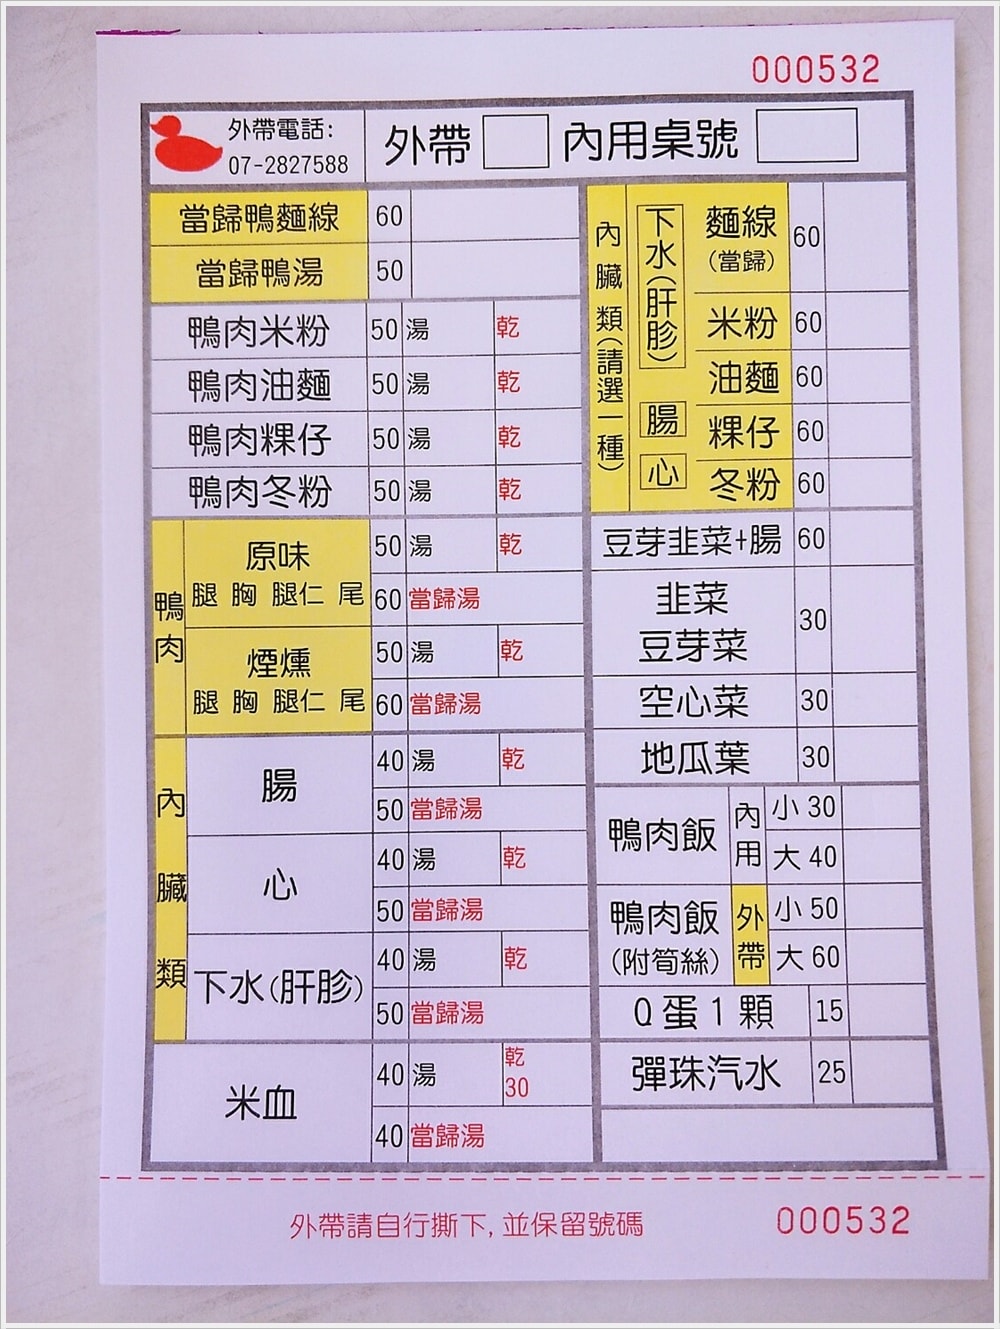 000532
外帶電話:
07-2827588
外帶 內用桌號
當歸鴨麵線 60
當歸鴨湯 50
鴨肉米粉 50 湯 乾
鴨肉油麵 50 湯 乾
鴨肉粿仔 50 湯 乾
鴨肉冬粉 50 湯 乾
鴨肉
原味
腿 胸 腿仁 尾
50 湯 乾
60 當歸湯
煙燻
腿 胸 腿仁 尾
50 湯 乾
60 當歸湯
內臟類
腸
40 湯 乾
50 當歸湯
心
40 湯 乾
50 當歸湯
下水(肝胗)
40 湯 乾
50 當歸湯
米血
40 湯 乾 30
40 當歸湯
內臟類(請選一種)
下水(肝胗)
腸
心
麵線
(當歸)
60
米粉 60
油麵 60
粿仔 60
冬粉 60
豆芽韭菜+腸 60
韭菜
豆芽菜
30
空心菜 30
地瓜葉 30
鴨肉飯
內用
小 30
大 40
鴨肉飯
(附筍絲)
外帶
小 50
大 60
Q蛋1顆 15
彈珠汽水 25
外帶請自行撕下,並保留號碼
000532